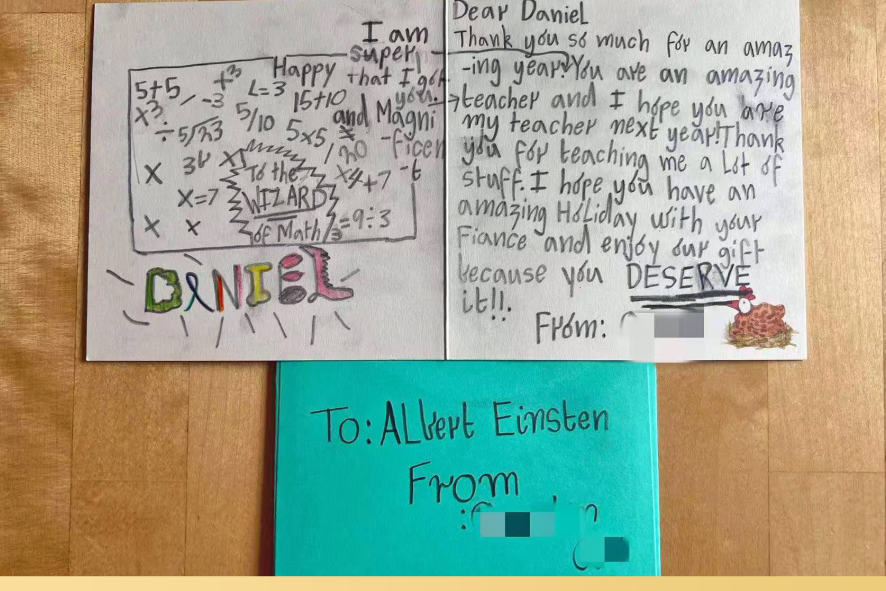 I am
super
Happy that I got
you.
and Magni
-ficen
-t
5+5
+³
-3
L=3
15+10
x³
÷
5√23
5/10
5x5
x
x
To the
WIZARD
of Math
x4+7
x=7
=9÷3
x
x
DANIEL
Dear Daniel
Thank you so much for an amaz
-ing year! You are an amazing
teacher and I hope you are
my teacher next year! Thank
you for teaching me a Lot of
stuff. I hope you have an
amazing Holiday with your
Fiance and enjoy our gift
because you DESERVE
it!!.
From:
To: ALbert Einsten
From
: